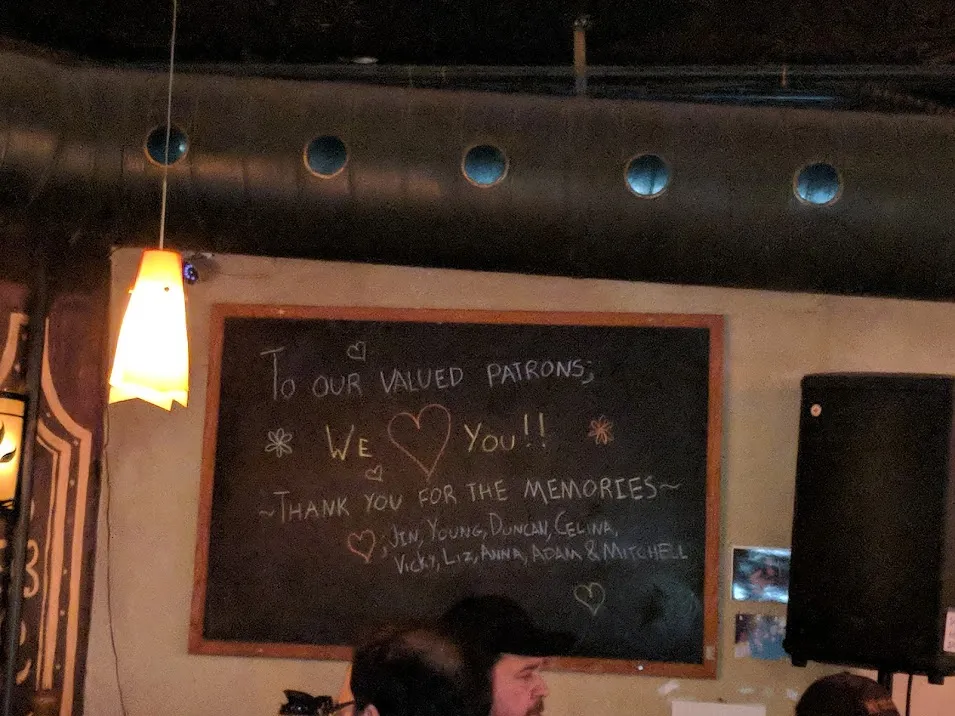 To OUR VALUED PATRONS;
WE ♡ YOU!!
~THANK YOU FOR THE MEMORIES~
♡, JIN, YOUNG, DUNCAN, CELINA,
VICKY, LIZ, ANNA, ADAM & MITCHELL